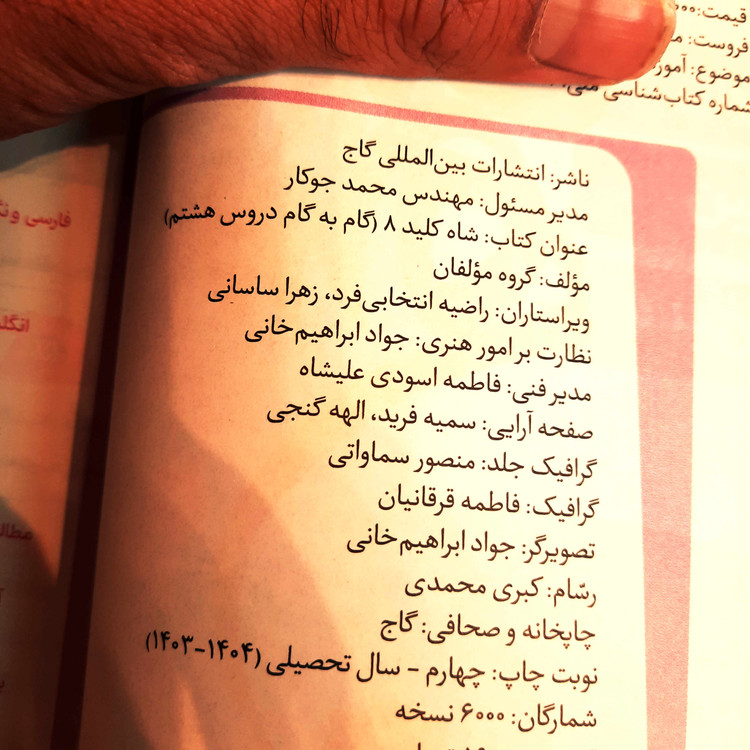 قیمت:
فروست:
موضوع:
شماره کتاب‌شناسی
ناشر: انتشارات بین‌المللی گاج
مدیر مسئول: مهندس محمد جوکار
عنوان کتاب: شاه کلید ۸ (گام به گام دروس هشتم)
مؤلف: گروه مؤلفان
ویراستاران: راضیه انتخابی‌فرد، زهرا ساسانی
نظارت بر امور هنری: جواد ابراهیم‌خانی
مدیر فنی: فاطمه اسودی علیشاه
صفحه آرایی: سمیه فرید، الهه گنجی
گرافیک جلد: منصور سماواتی
گرافیک: فاطمه قرقانیان
تصویرگر: جواد ابراهیم‌خانی
رسّام: کبری محمدی
چاپخانه و صحافی: گاج
نوبت چاپ: چهارم - سال تحصیلی (۱۴۰۴-۱۴۰۳)
شمارگان: ۶۰۰۰ نسخه
فارسی و